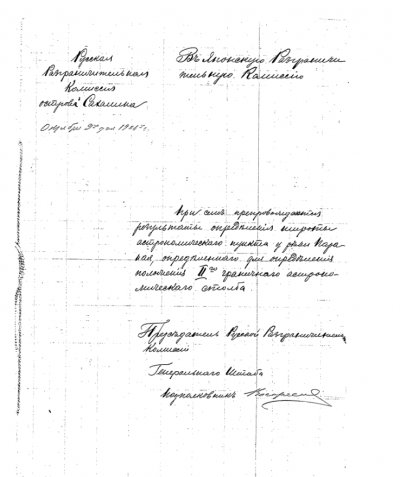 Русская
Разграничительная
Комиссия
острова Сахалина
Октября 9го дня 190 г.
Въ Японскую Разграничи
тельную Комиссію
При семъ препровождаются
результаты опредѣленія широты
астрономическаго пункта у рѣки
опредѣленнаго для опредѣленія
положенія II го граничнаго астроно-
мическаго столба
Предсѣдатель Русской Разграничительной
Комиссіи
Генеральнаго Штаба
Подполковникъ